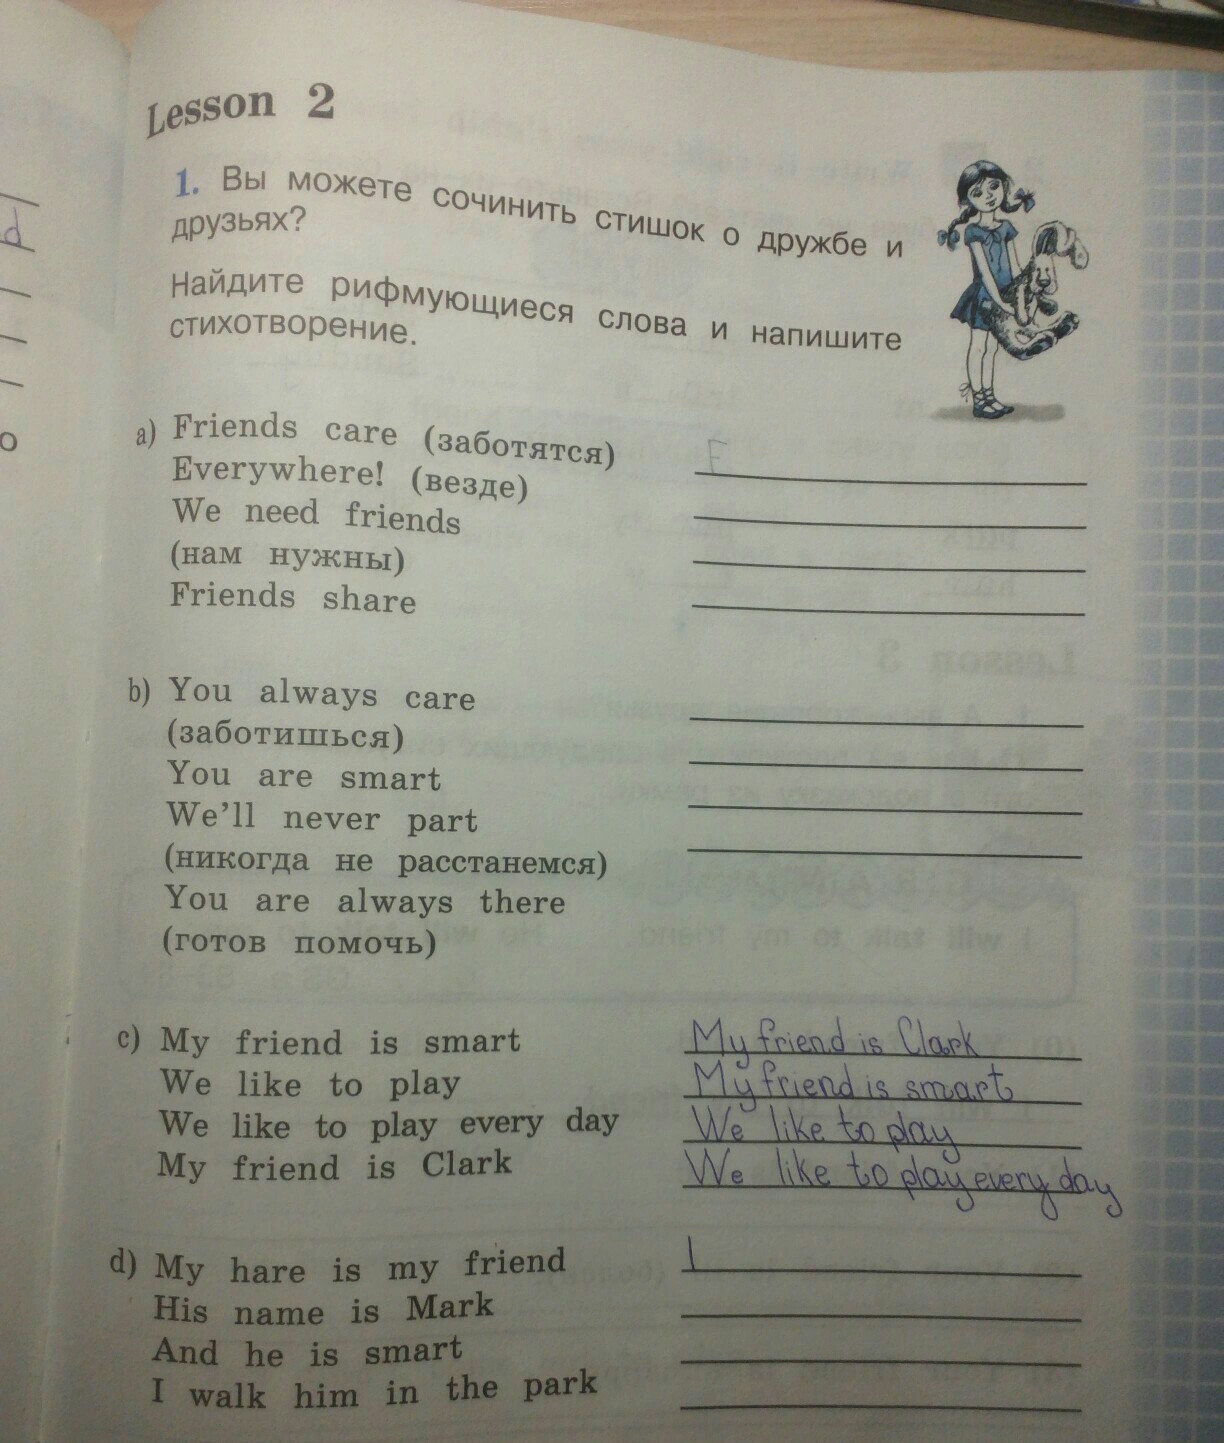 Lesson 2
1. Вы можете сочинить стишок о дружбе и
друзьях?
Найдите рифмующиеся слова и напишите
стихотворение.
a) Friends care (заботятся)
F
Everywhere! (везде)
We need friends
(нам нужны)
Friends share
b) You always care
(заботишься)
You are smart
We'll never part
(никогда не расстанемся)
You are always there
(готов помочь)
c) My friend is smart
My friend is Clark
We like to play
My friend is smart
We like to play every day
We like to play
My friend is Clark
We like to play every day
d) My hare is my friend
His name is Mark
And he is smart
I walk him in the park